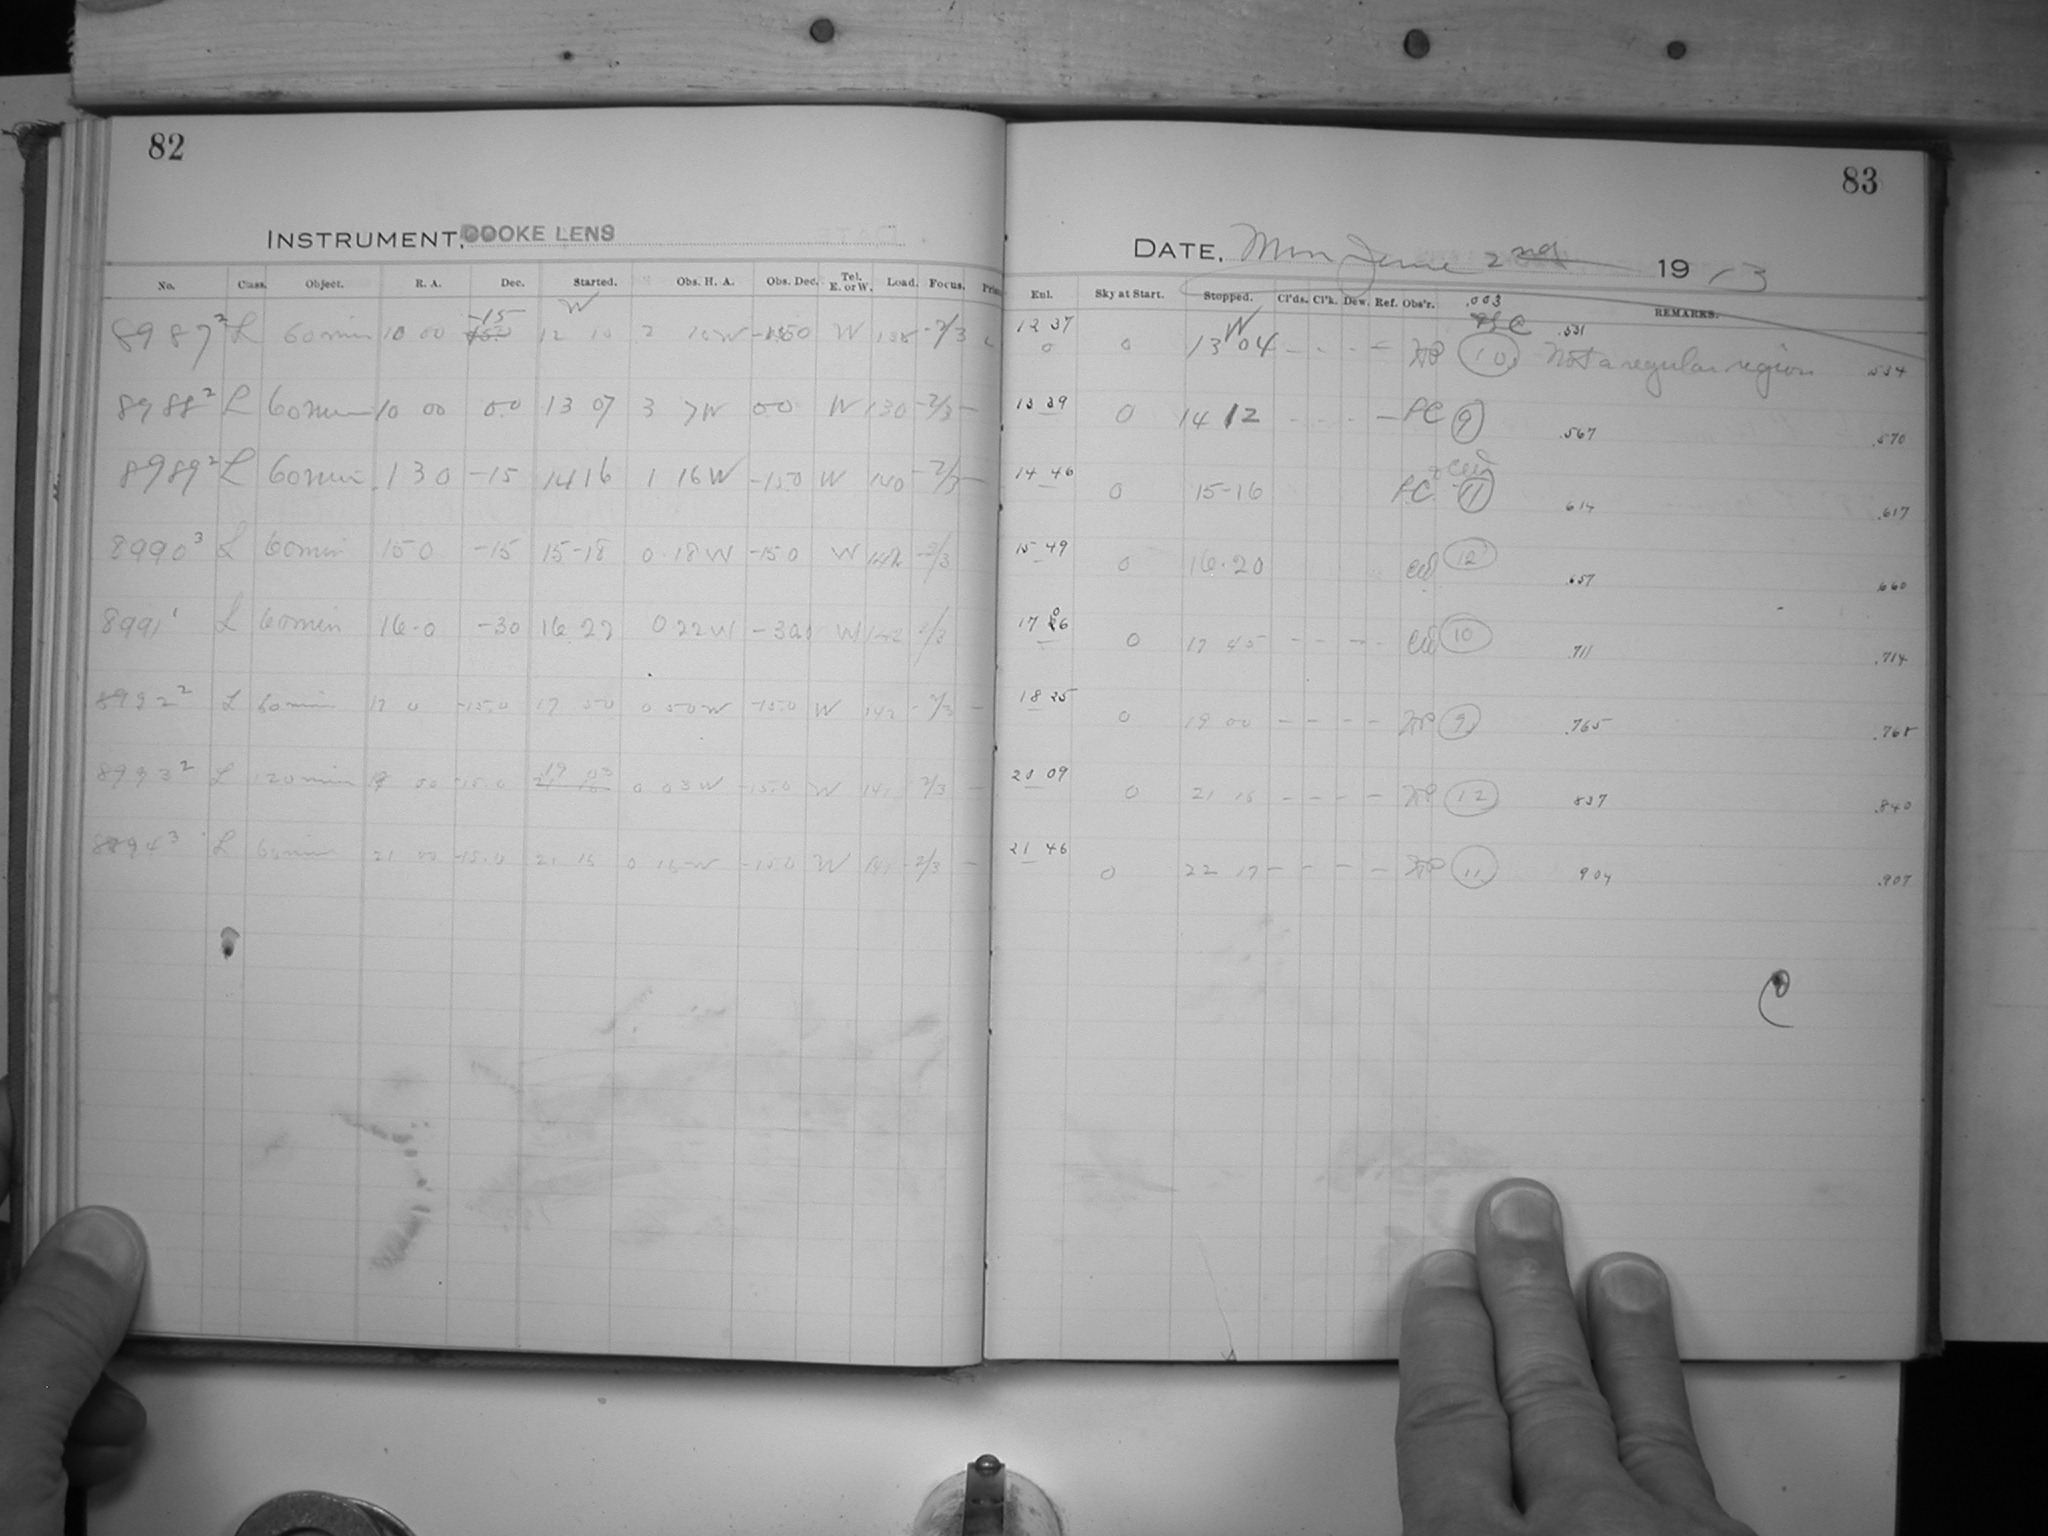 82
INSTRUMENT, COOKE LENS
No. Class. Object. R. A. Dec. Started. Obs. H. A. Obs. Dec. Tel. E. or W. Load. Focus.
-15 W
8987² L 60 min 10 00 12 10 2 10 W W 138 -2/3
8988² L 60 min 10 00 00 13 07 3 7W 00 W 130 -2/3 -
8989² L 60 min 130 -15 1416 1 16 W -150 W 140 -2/3 -
8990³ L 60 min 150 -15 15-18 0 18 W -150 W 142 -2/3
8991¹ L 60 min 16-0 -30 16 22 0 22 W -300 W 142 -2/3
8992² L 60 min 17 0 -150 17 50 0 50 W -150 W 142 -2/3 -
8993² L 120 min 19 00 -15.0 19 03 0 03 W -15.0 W 141 -2/3 -
8994³ L 60 min 21 00 -15.0 21 16 0 16 W -150 W 141 -2/3 -
83
DATE, Mon June 2nd 1913
Enl. Sky at Start. Stopped. Cl'ds. Cl'k. Dew. Ref. Obs'r. REMARKS.
.003
12 37 W .531
0 0 13 04 - - - - (10) Not a regular region .534
13 39 0 14 12 - - - - PC (9) .567 .570
14 46 0 15-16 PC (11) 614 .617
15 49 0 16.20 (12) .657 .660
17 0 17 45 - - - - (10) .711 .714
18 25 0 19 00 - - - - (9) .765 .768
20 09 0 21 15 - - - - (12) 837 .840
21 46 0 22 17 - - - - (11) 904 .907
C